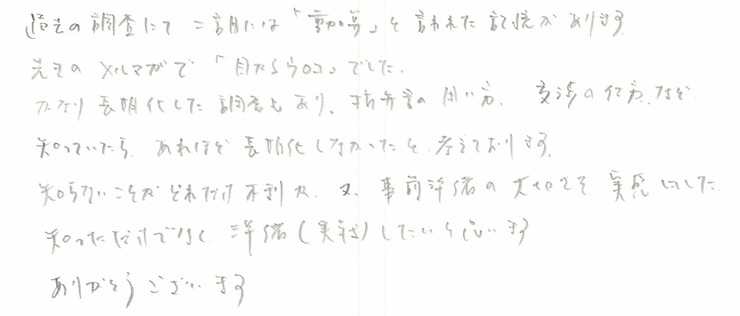 過去の調査にて 二言目には「重加算」と言われた記憶があります
先生のメルマガで「目からウロコ」でした.
かなり長期化した調査もあり、指弁書の用い方、交渉の仕方など
知っていたら、あれほど長期化しなかったと考えております.
知らないことがどれだけ不利か、又、事前準備の大切さを実感しました
知っただけでなく 準備(実践)したいと思います
ありがとうございます